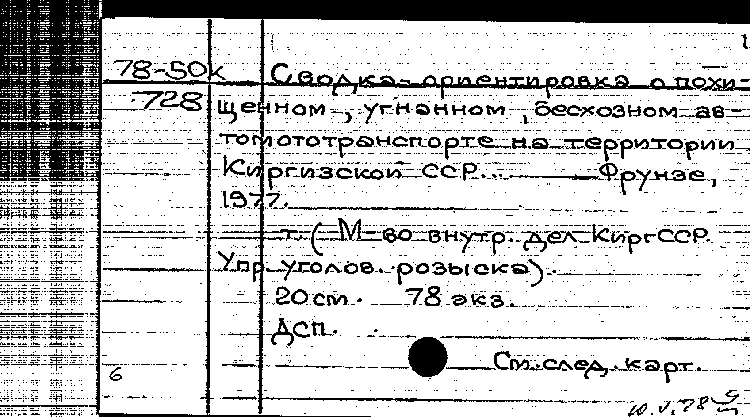 78-50к Сводка-ориентировка о похи-
728 щенном, угнанном, бесхозном ав-
томототранспорте на территории
Киргизской ССР... Фрунзе,
1977.
т. (М-во внутр. дел КиргССР.
Упр. уголов. розыска).
20 см. 78 экз.
ДСП.
См. след. карт.
6